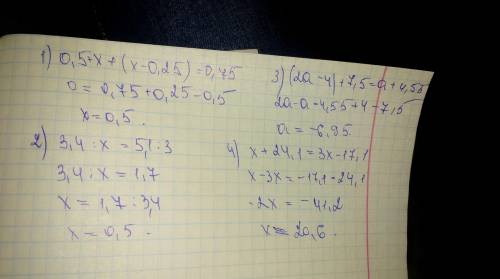 1) 0,5+x+(x-0,25)=0,75
0=0,75+0,25-0,5
x=0,5.
2) 3,4:x=5,1:3
3,4:x=1,7
x=1,7:3,4
x=0,5.
3) (2a-4)+7,5=a+4,55
2a-a-4,55+4-7,5
a=-6,95.
4) x+24,1=3x-17,1
x-3x=-17,1-24,1
-2x=-41,2
x=20,6.